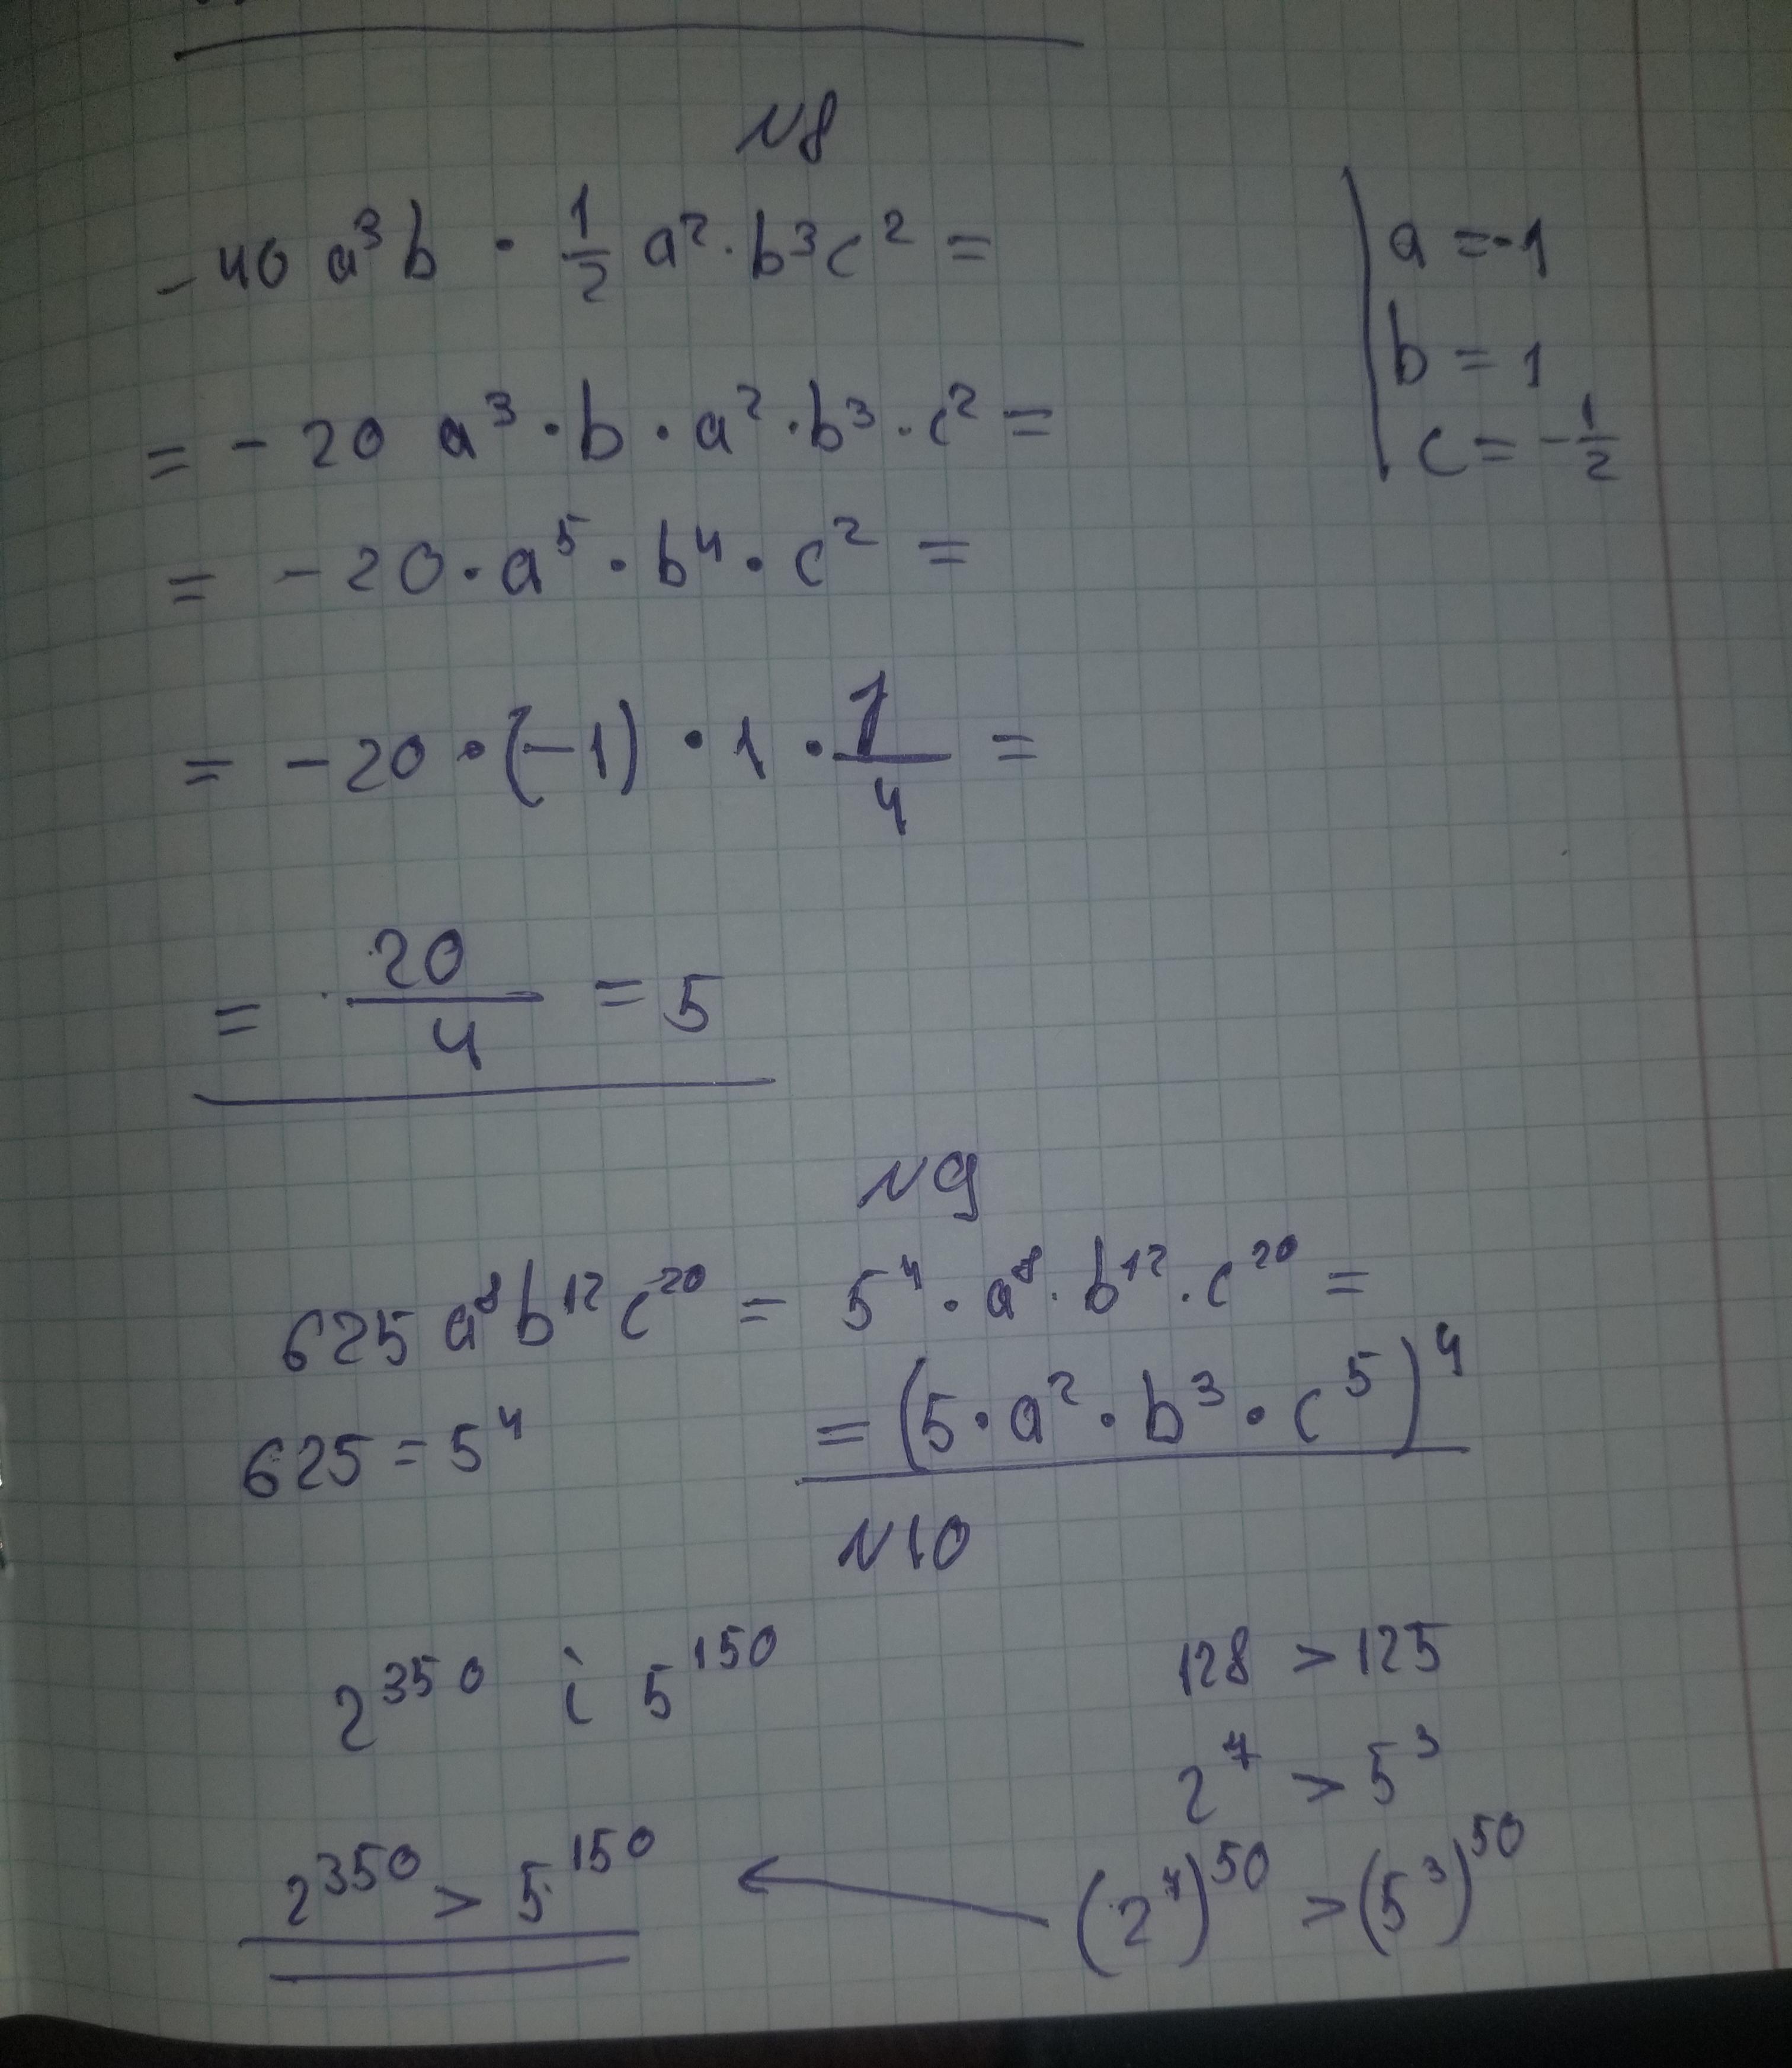 N8
-40 a³b · 1/2 a² · b³c² =
a = -1
b = 1
c = -1/2
= -20 a³ · b · a² · b³ · c² =
= -20 · a⁵ · b⁴ · c² =
= -20 · (-1) · 1 · 1/4 =
= 20/4 = 5
N9
625 a⁸b¹²c²⁰ = 5⁴ · a⁸ · b¹² · c²⁰ =
= (5 · a² · b³ · c⁵)⁴
625 = 5⁴
N10
2³⁵⁰ i 5¹⁵⁰
128 > 125
2⁷ > 5³
(2⁷)⁵⁰ > (5³)⁵⁰
2³⁵⁰ > 5¹⁵⁰